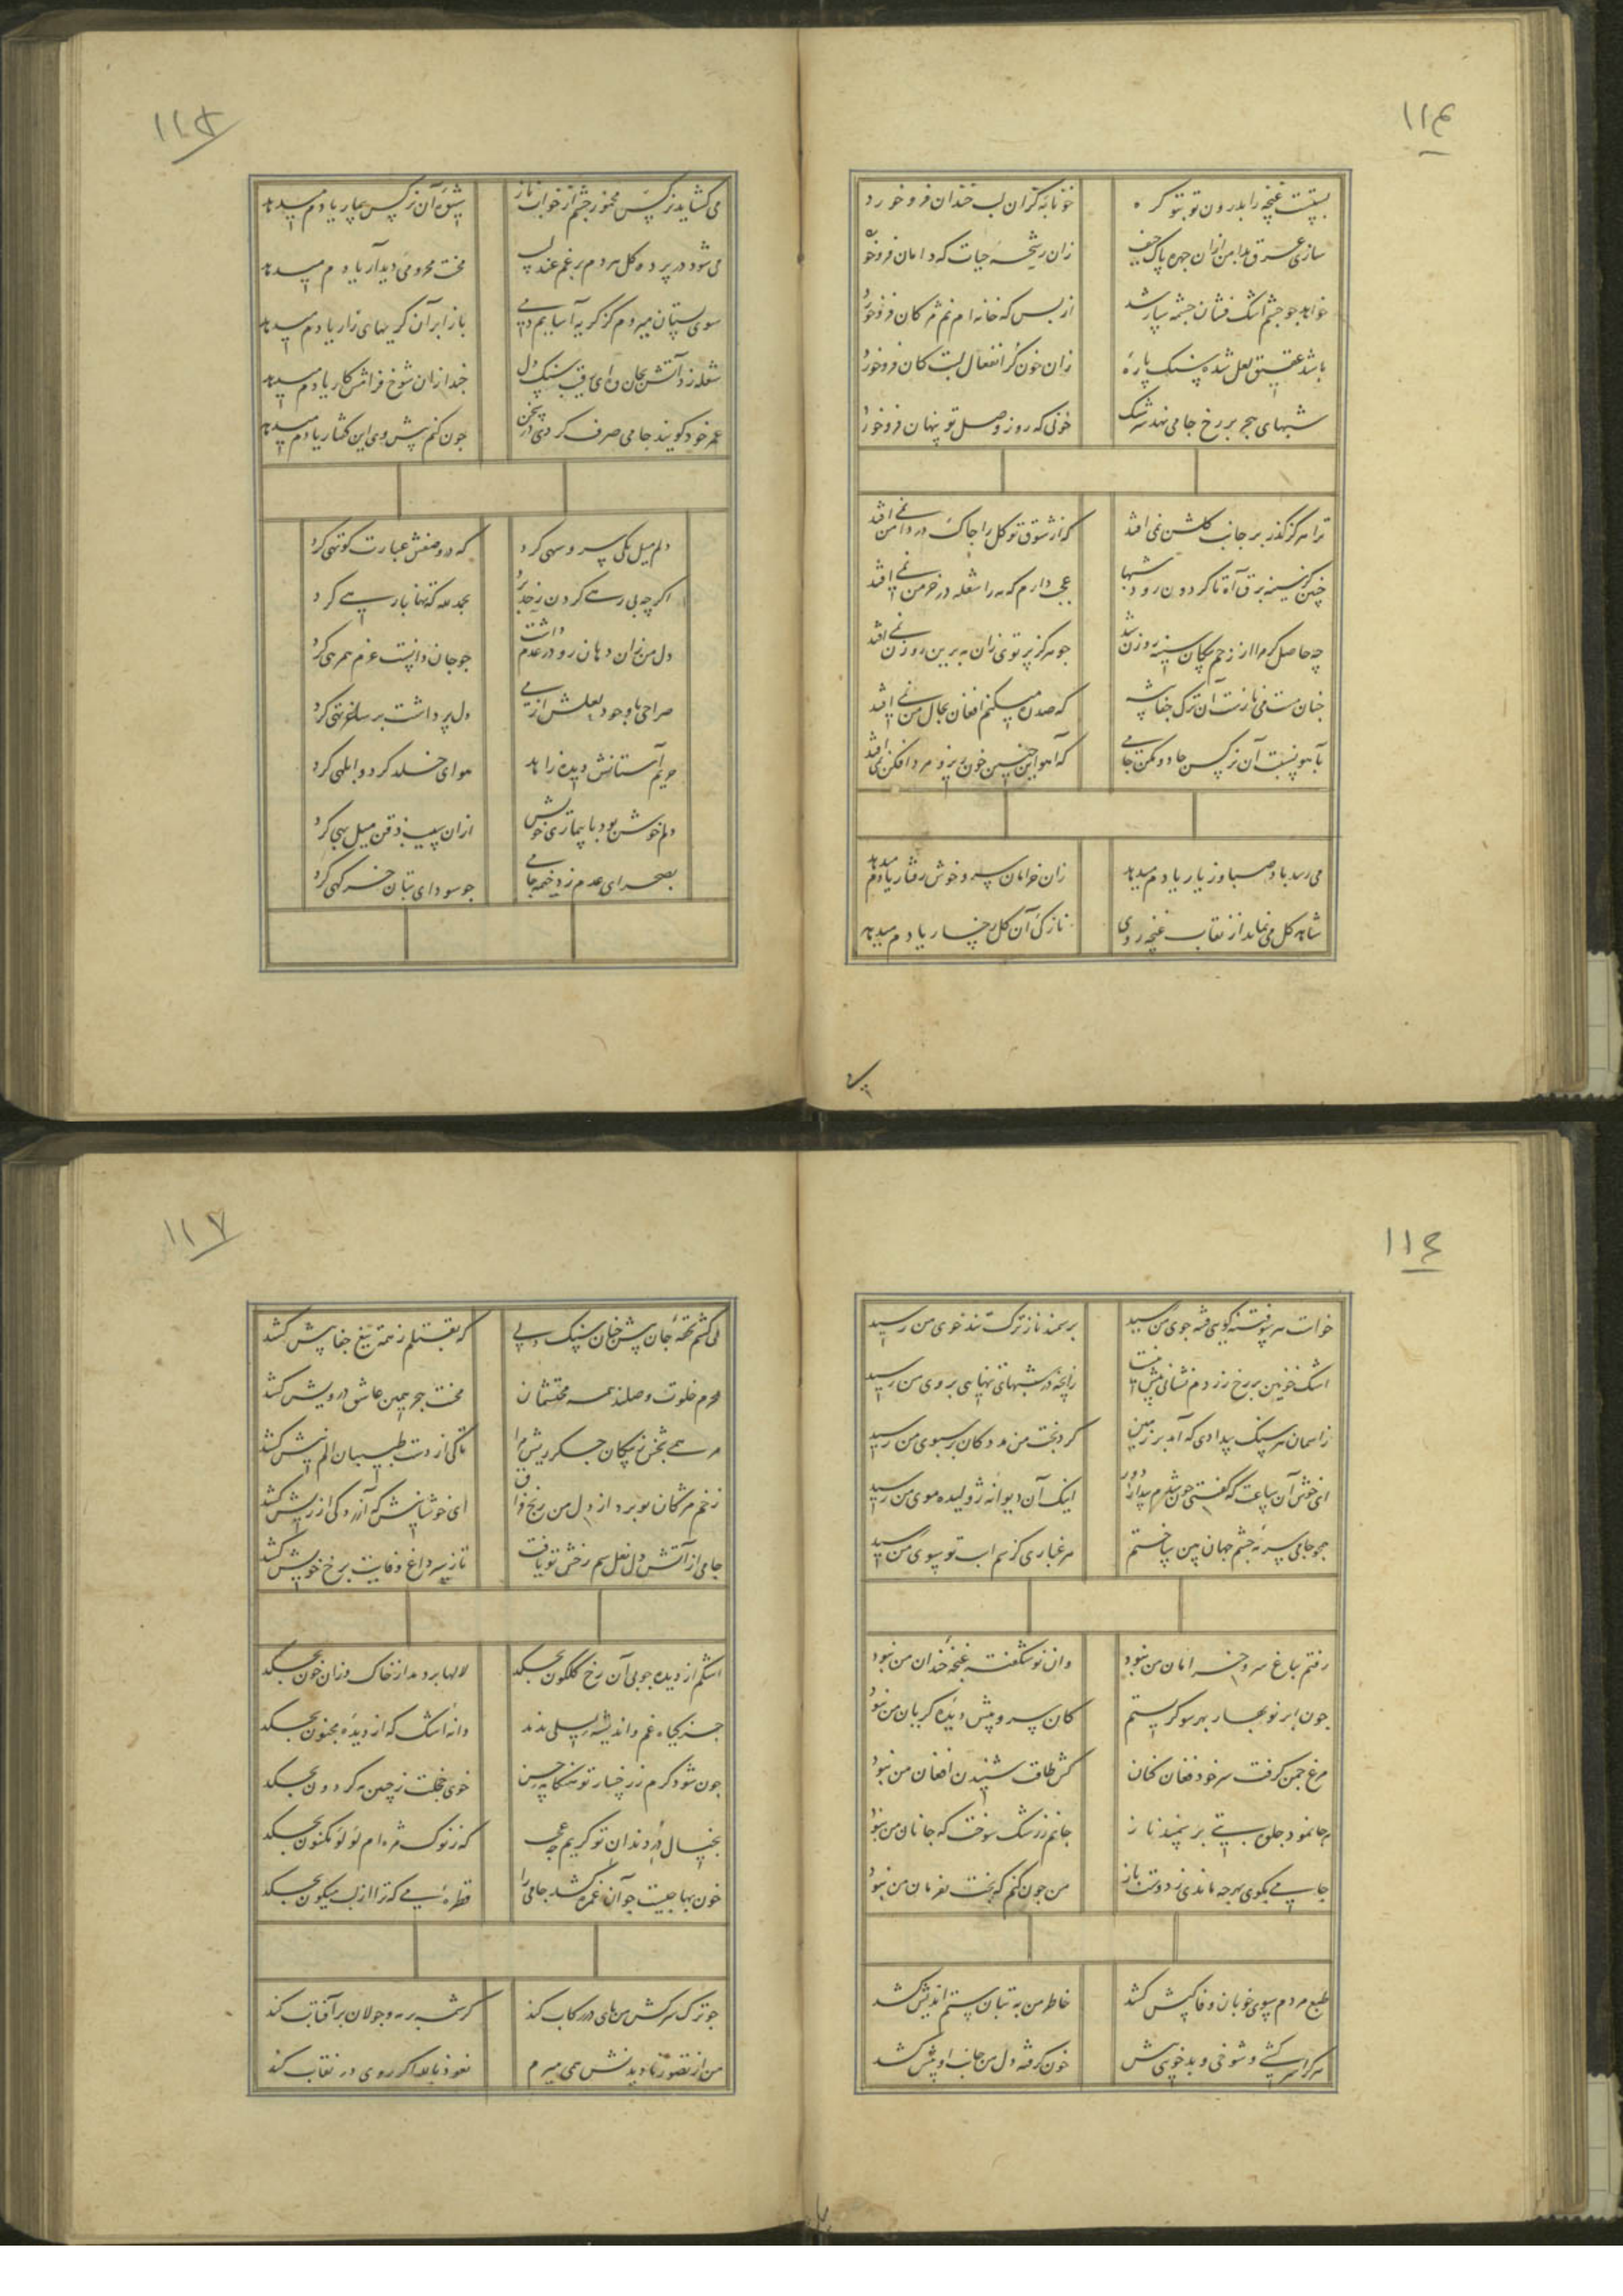 ۱۱۴
بستست غنچه را بدرون تو بتو کره
خونابه کزان لب خندان فرو خورد
سازی عرق بدامن ازان چهره پاک حیف
زان رشحه حیات که دامان فرو خورد
خواهد جو چشم اشک فشان چشمه سار شد
از بس که خانه ام نم مژکان فرو خورد
باشد عقیق لعل شده سنک پاره
زان خون کز انفعال لبت کان فرو خورد
شبهای هجر بر رخ جامی نهد سرشک
خونی که روز وصل تو پنهان فرو خورد
ترا هرکز کذر بر جانب کلشن نمی افتد
که از شوق تو کل را چاک در دامن نمی افتد
چنین کز سینه برق آه تا کردون رود شبها
عجب دارم که مه را شعله در خرمن نمی افتد
چه حاصل کر مرا از زخم پیکان سینه روزن شد
جو هرکز پرتوی زان مه برین روزن نمی افتد
چنان مست می نازست آن ترک جفا پیشه
که صد ره میکنم افغان بحال من نمی افتد
بآهو نسبت آن نرکس جادو مکن جامی
که آهو این چنین خون ریز و مرد افکن نمی افتد
می رسد باد صبا وز یار یادم میدهد
زان خرامان سرو خوش رفتار یادم میدهد
شاهد کل می نماید از نقاب غنچه روی
نازکی آن کل رخسار یادم میدهد
۱۱۵
می کشاید نرکس مخمور چشم از خواب ناز
شیوه آن نرکس بیمار یادم میدهد
می شود در پرده کل هر دم بزعم عندلیب
محنت محرومی دیدار یادم میدهد
سوی بستان میروم کز کریه آسایم دمی
باز ابر آن کریهای زار یادم میدهد
شعله زد آتش بجان وای رقیب سنک دل
خدا زان شوخ فرامش کار یادم میدهد
عمر خود کویند جامی صرف کردی در سخن
چون کنم پیش وی این کفتار یادم میدهد
دلم میل یکی سرو سهی کرد
که در وصفش عبارت کوتهی کرد
اکرچه بی رهی کردن ز حد برد
بحمدلله که تنها با رهی کرد
دل من زان دهان رو در عدم داشت
جو جان دانست عزم همرهی کرد
صراحی با وجود لعلش از می
دل پر داشت بر ساغر تهی کرد
حریم آستانش دیده زاهد
هوای خلد کرد و ابلهی کرد
دلم خوش بود با بیماری خویش
ازان سیب ذقن میل بهی کرد
بصحرای عدم زد خیمه جامی
جو سودای بتان خرکهی کرد
۱۱۶
خواست هر سو فتنه کویی فتنه جوی من رسید
بر سمند ناز ترک تند خوی من رسید
اشک خونین بر رخ زردم نشانی بیش نیست
زانچه در شبهای تنهایی بروی من رسید
ز آسمان هر سنک بیدادی که آمد بر زمین
کرد بخت من مدد کان بر سبوی من رسید
ای خوش آن ساعت که کفتی چون شدم پیدا ز دور
اینک آن دیوانه ژولیده موی من رسید
همچو جامی سرمه چشم جهان بین ساختم
هر غباری کز سم اسب تو سوی من رسید
رفتم بباغ سرو خرامان من نبود
وان نو شکفته غنچه خندان من نبود
چون ابر نو بهار بهر سو کریستم
کان سرو پیش دیده کریان من نبود
مرغ چمن کرفت سر خود فغان کنان
کش طاقت شنیدن افغان من نبود
هرجا نمود جلوه بتی بر سمند ناز
جانم ز رشک سوخت که جانان من نبود
جامی مکوی بهر چه ماندی ز دوست باز
من چون کنم که بخت بفرمان من نبود
طبع مردم سوی خوبان وفا کیش کشد
خاطر من به بتان ستم اندیش کشد
هرکرا سرکشی و شوخی و بدخویی بیش
خون کرفته دل من جانب او بیش کشد
۱۱۷
می کشم تحفه جان پیش چنان سنک دلی
که بقتلم ز همه تیغ جفا پیش کشد
محرم خلوت وصلند همه محتشمان
محنت هجر همین عاشق درویش کشد
مرهمی بخش ز پیکان جکر ریش مرا
تا کی از دست طبیبان الم نیش کشد
زخم مژکان تو برد از دل من رنج فراق
ای خوشا نیش که آزردکی از ریش کشد
جامی از آتش دل نعل سم رخش تو یافت
تازه سر داغ وفایت برخ خویش کشد
اشکم از دیده چو بی آن رخ کلکون بچکد
لالها بر دمد از خاک وزان خون بچکد
جز کیاه غم و اندیشه لیلی ندمد
دانه اشک که از دیده مجنون بچکد
چون شود کرم ز رخسار تو هنکامه حسن
خوی خجلت ز جبین مه کردون بچکد
بخیال در دندان تو کریم چه عجب
که ز نوک مژه ام لؤلؤ مکنون بچکد
خون بها چیست جو آن غمزه کشد جامی را
قطره می که ترا از لب میکون بچکد
چو ترک سرکش من پای در رکاب کند
کرشمه بر مه و جولان بر آفتاب کند
من از تصور نادیدنش همی میرم
نعوذ بالله اکر روی در نقاب کند